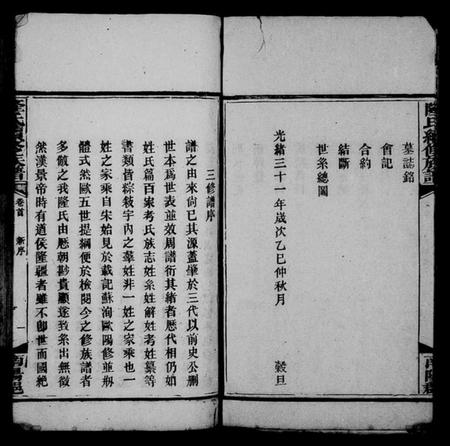 墓誌銘
會記
合約
結斷
世系總圖
光緒三十一年歲次乙巳仲秋月 穀旦
三修譜序
譜之由來尙已其源蓋肇於三代以前史公刪
世本爲世表並效周譜衍其緖者歴代相仍如
姓氏篇百家考氏族志姓系姓解姓考姓纂等
書類皆綜敍宇內之羣姓非一姓之家乘也一
姓之家乘自宋始見於載記蘇洵歐陽修並剏
體式然歐五世提綱便於檢閱今之修族譜者
多倣之我隆氏由歴朝尠貴顯遂致系出無徵
然漢景帝時有遒侯隆疆者雖不卽世而國絶
隆氏續修族譜
卷首
新序
一
南陽郡
隆氏續修族譜
南陽郡